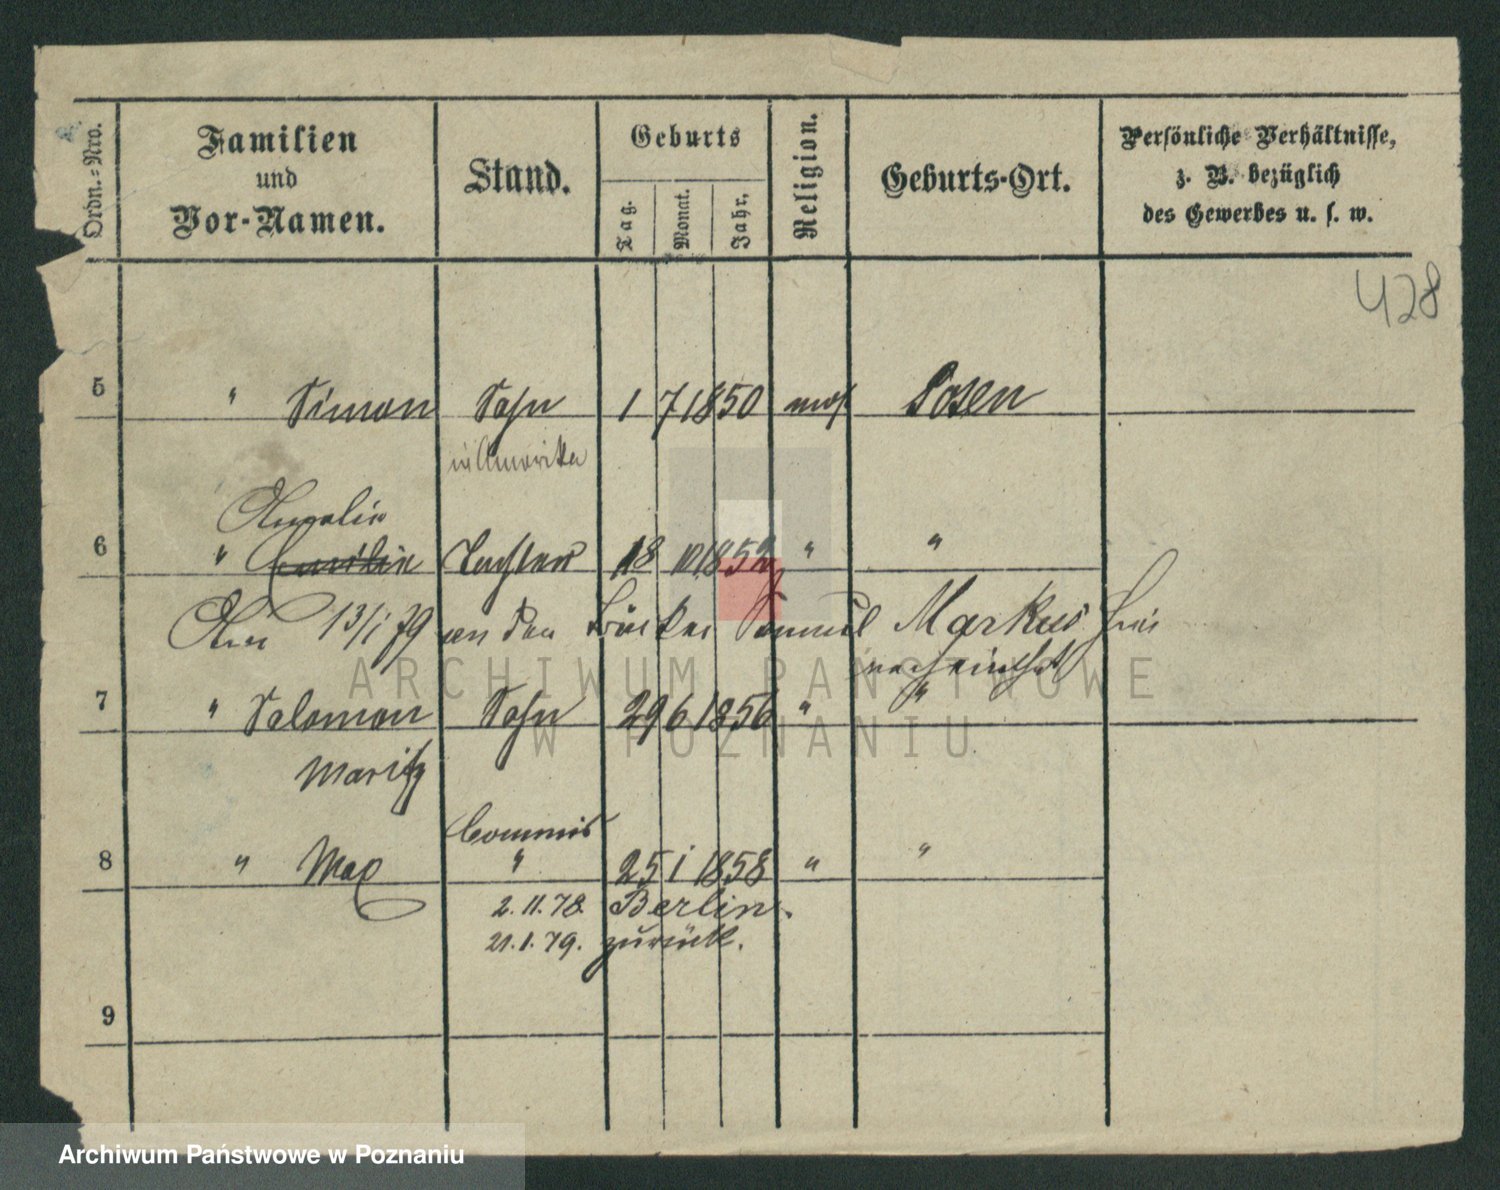 Ordn.-Nro.
Familien
und
Vor-Namen.
Stand.
Geburts
Tag.
Monat.
Jahr.
Religion.
Geburts-Ort.
Persönliche Verhältnisse,
z. B. bezüglich
des Gewerbes u. s. w.
428
5 " Simon Sohn 1 7 1850 mos Posen
in Amerika
Amalie
6 " Caecilie Tochter 18 10 1852 " "
Am 13/1 79 an den Bäcker Samuel Markus hier
verheirathet
7 " Salomon Sohn 29 6 1856 " "
Moritz
Commis
8 " Max " 25 1 1858 " "
2. 11. 78. Berlin.
21. 1. 79. zurück.
9
ARCHIWUM PAŃSTWOWE
W POZNANIU
Archiwum Państwowe w Poznaniu